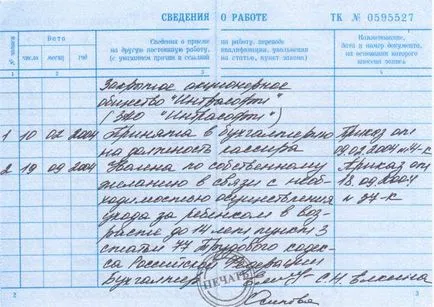 СВЕДЕНИЯ О РАБОТЕ ТК № 0595527
№ записи
Дата
число месяц год
Сведения о приеме на работу, переводе
на другую постоянную работу, квалификации, увольнении
(с указанием причин и ссылкой на статью, пункт закона)
Наименование,
дата и номер документа,
на основании которого
внесена запись
1 2 3 4
Закрытое акционерное
общество "Интрасофт"
(ЗАО "Интрасофт")
1 10 02 2004 Принята в бухгалтерию Приказ от
на должность кассира 09.02.2004 №4-К
2 19 09 2004 Уволена по собственному Приказ от
желанию в связи с необ- 18.09.2004
ходимостью осуществления № 37-К
ухода за ребенком в воз-
расте до 14 лет, пункт 3
статьи 77 Трудового кодек-
са Российской Федерации
Бухгалтер С.Н.
ПЕЧАТЬ
2 3